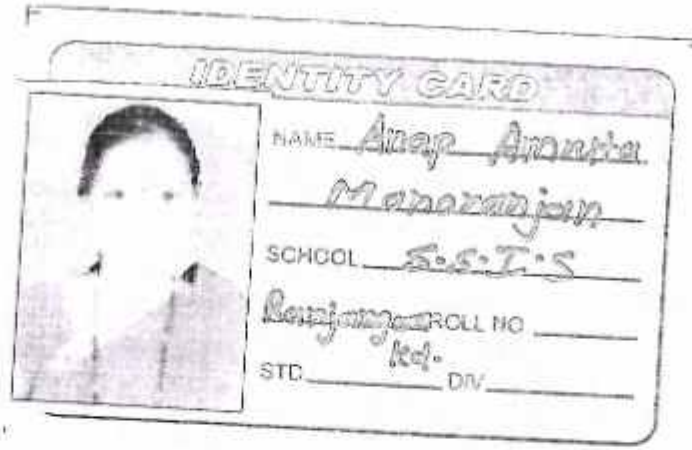 IDENTITY CARD
NAME Anap Amruta
Manoranjan
SCHOOL S.S.I.S
Ranjangaon ROLL NO
Kd.
STD. DIV.